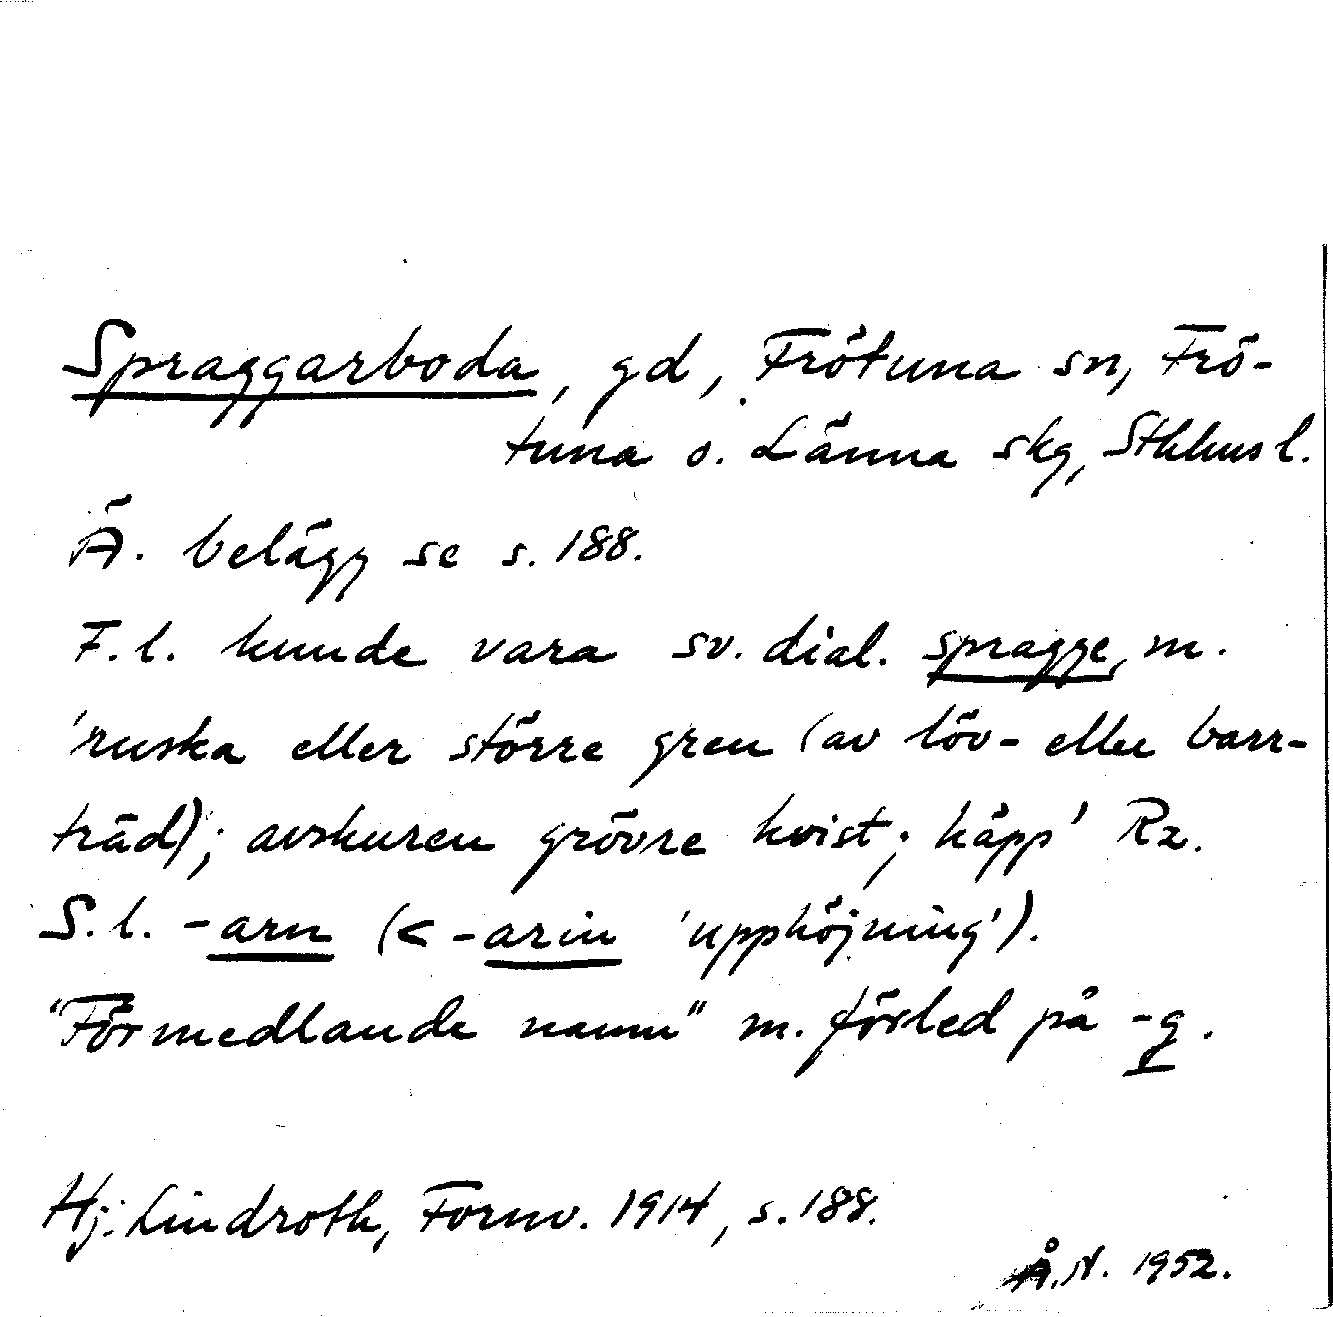 Spraggarboda, gd, Frötuna sn, Frö-
tuna o. Länna skg, Sthlms l.
Ä. belägg se s. 188.
F.l. kunde vara sv. dial. spragge, m.
'ruska eller större gren (av löv- eller barr-
träd); avskuren grövre kvist; käpp' Rz.
S.l. -arn (< -arin 'upphöjning').
"Förmedlande namn" m. förled på -g.
Hj. Lindroth, Fornv. 1914, s. 188.
Å.N. 1952.